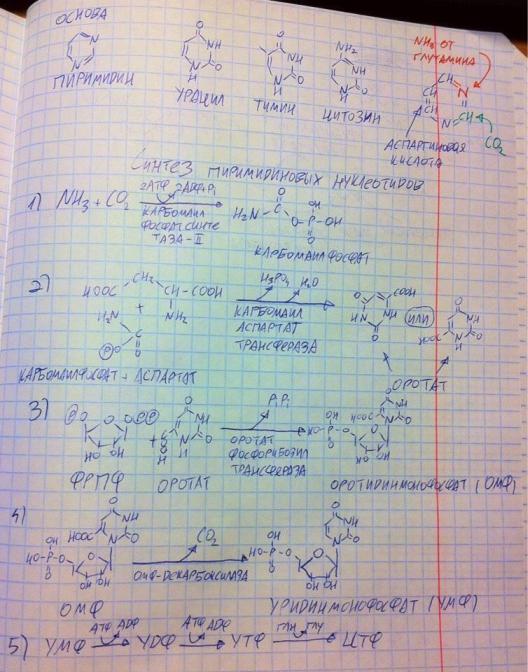 ОСНОВА
ПИРИМИДИН
УРАЦИЛ
ТИМИН
ЦИТОЗИН
NH₃ ОТ
ГЛУТАМИНА
АСПАРТИНОВАЯ
КИСЛОТА
CO₂
СИНТЕЗ ПИРИМИДИНОВЫХ НУКЛЕОТИДОВ
1) NH₃ + CO₂
2АТФ 2АДФ+Pi
КАРБОМАИЛ
ФОСФАТ СИНТЕ
ТАЗА-II
H₂N C O O-P-OH OH O
КАРБОМАИЛФОСФАТ
2) HOOC CH₂ CH-COOH NH₂
+
H₂N C O P O
H₃PO₄ H₂O
КАРБОМАИЛ
АСПАРТАТ
ТРАНСФЕРАЗА
ИЛИ
ОРОТАТ
КАРБОМАИЛФОСФАТ + АСПАРТАТ
3)
ФРПФ
ОРОТАТ
PiPi
ОРОТАТ
ФОСФОРИБОЗИЛ
ТРАНСФЕРАЗА
ОРОТИДИНМОНОФОСФАТ (ОМФ)
4)
CO₂
ОМФ-ДЕКАРБОКСИЛАЗА
ОМФ
УРИДИНМОНОФОСФАТ (УМФ)
5) УМФ АТФ АДФ УДФ АТФ АДФ УТФ ГЛН ГЛУ ЦТФ